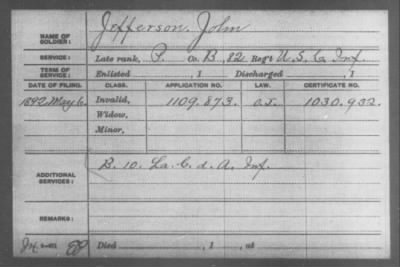 NAME OF SOLDIER: Jefferson, John
SERVICE: Late rank, P. Co. B, 82 Reg't U.S.C. Inf.
TERM OF SERVICE: Enlisted , 1 Discharged , 1
DATE OF FILING. CLASS. APPLICATION NO. LAW. CERTIFICATE NO.
1892 May 6 Invalid, 1109.873. 1030.932.
Widow,
Minor,
ADDITIONAL SERVICES: B. 10. La. C. d. A. Inf.
REMARKS:
Died , 1 , at